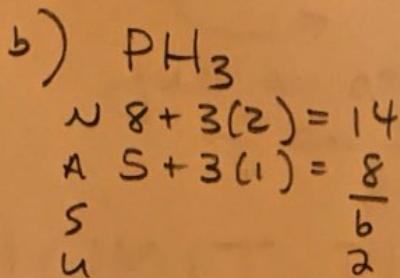 b) PH3
N 8 + 3(2) = 14
A 5 + 3(1) = 8
S 6
U 2